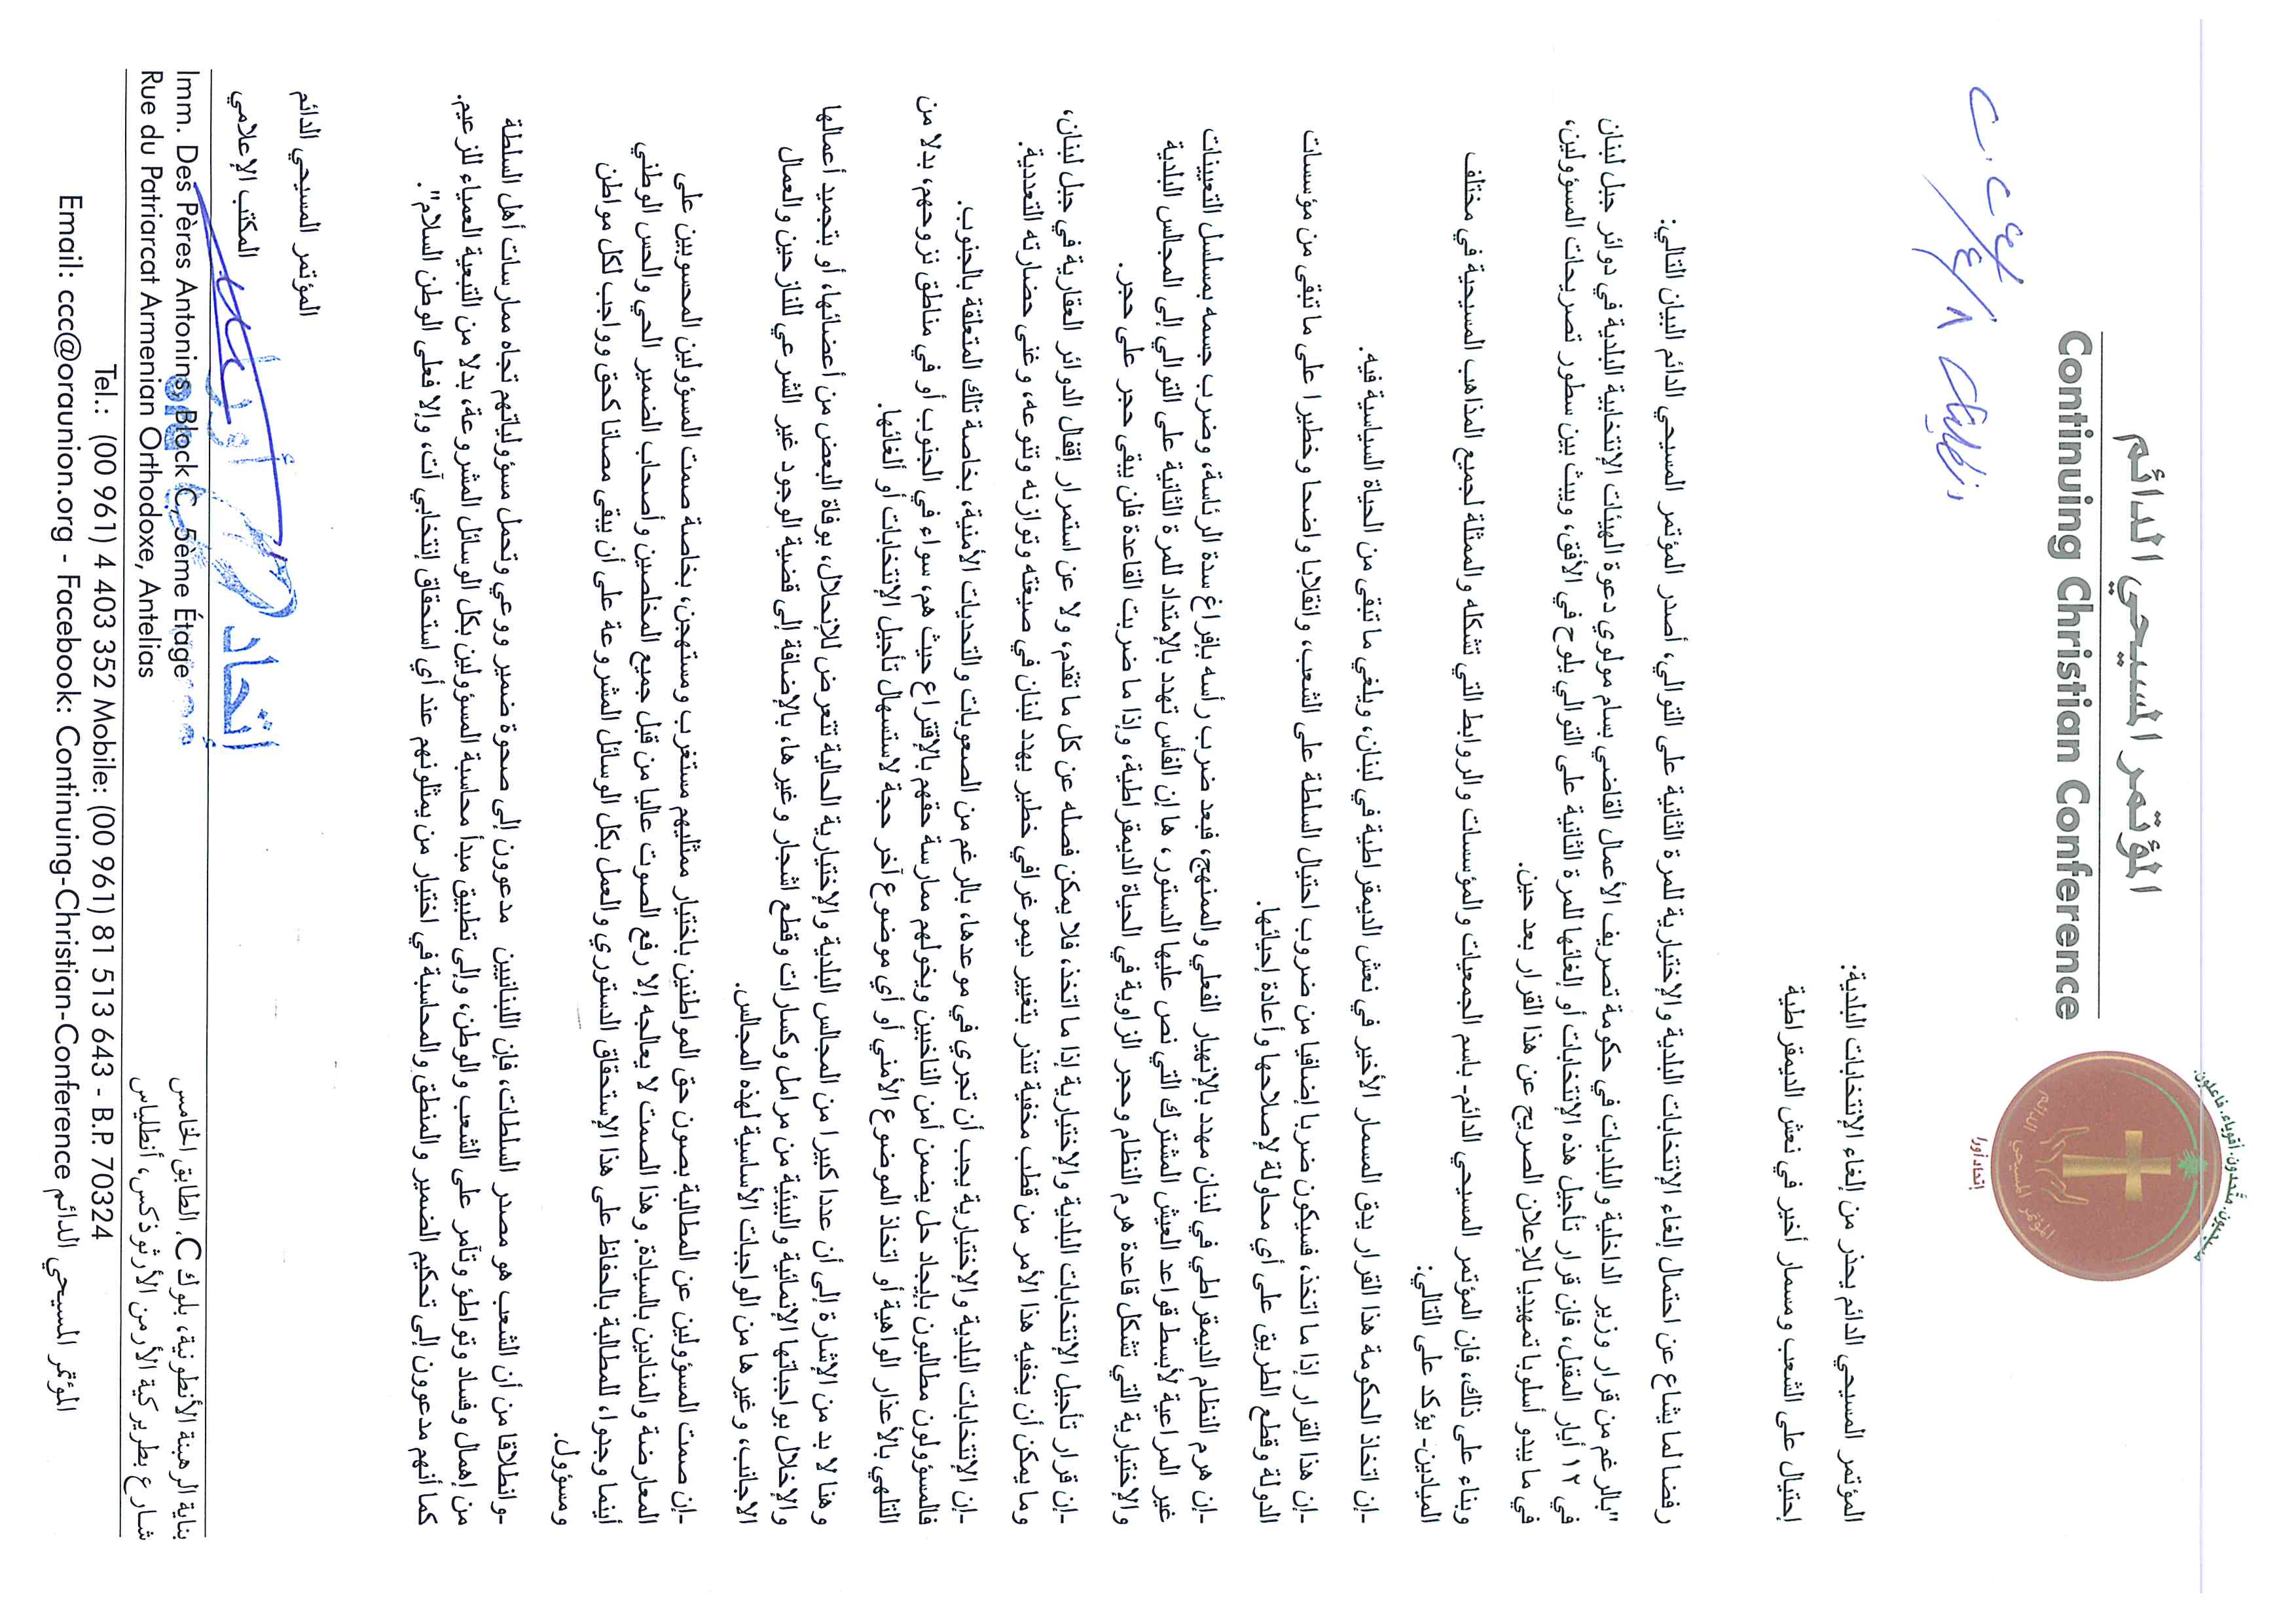 المؤتمر المسيحي الدائم
Continuing Christian Conference
متحدون، أقوياء، فاعلون.
المؤتمر المسيحي الدائم
إتحاد أورا
أنطلياس ٨/٤/٢٠٢٤
المؤتمر المسيحي الدائم يحذر من إلغاء الإنتخابات البلدية:
إحتيال على الشعب ومسمار أخير في نعش الديمقراطية
رفضا لما يشاع عن احتمال إلغاء الإنتخابات البلدية والإختيارية للمرة الثانية على التوالي، أصدر المؤتمر المسيحي الدائم البيان التالي:
"بالرغم من قرار وزير الداخلية والبلديات في حكومة تصريف الأعمال القاضي بسام مولوي دعوة الهيئات الإنتخابية البلدية في دوائر جبل لبنان
في ١٢ أيار المقبل، فإن قرار تأجيل هذه الإنتخابات أو إلغائها للمرة الثانية على التوالي يلوح في الأفق، ويبث بين سطور تصريحات المسؤولين،
في ما يبدو أسلوبا تمهيديا للإعلان الصريح عن هذا القرار بعد حين.
وبناء على ذلك، فإن المؤتمر المسيحي الدائم- باسم الجمعيات والمؤسسات والروابط التي تشكله والممثلة لجميع المذاهب المسيحية في مختلف
الميادين- يؤكد على التالي:
-إن اتخاذ الحكومة هذا القرار يدق المسمار الأخير في نعش الديمقراطية في لبنان، ويلغي ما تبقى من الحياة السياسية فيه.
-إن هذا القرار إذا ما اتخذ، فسيكون ضربا إضافيا من ضروب احتيال السلطة على الشعب، وانقلابا واضحا وخطيرا على ما تبقى من مؤسسات
الدولة وقطع الطريق على أي محاولة لإصلاحها وأعادة إحيائها.
-إن هرم النظام الديمقراطي في لبنان مهدد بالإنهيار الفعلي والممنهج، فبعد ضرب رأسه بإفراغ سدة الرئاسة، وضرب جسمه بمسلسل التعيينات
غير المراعية لأبسط قواعد العيش المشترك التي نص عليها الدستور، ها إن الفأس تهدد بالإمتداد للمرة الثانية على التوالي إلى المجالس البلدية
والإختيارية التي تشكل قاعدة هرم النظام وحجر الزاوية في الحياة الديمقراطية، وإذا ما ضربت القاعدة فلن يبقى حجر على حجر.
-إن قرار تأجيل الإنتخابات البلدية والإختيارية إذا ما اتخذ، فلا يمكن فصله عن كل ما تقدم، ولا عن استمرار إقفال الدوائر العقارية في جبل لبنان،
وما يمكن أن يخفيه هذا الأمر من قطب مخفية تنذر بتغيير ديموغرافي خطير يهدد لبنان في صيغته وتوازنه وتنوعه، وغنى حضارته التعددية.
-إن الإنتخابات البلدية والإختيارية يجب أن تجري في موعدها، بالرغم من الصعوبات والتحديات الأمنية، بخاصة تلك المتعلقة بالجنوب.
فالمسؤولون مطالبون بإيجاد حل يضمن أمن الناخبين ويخولهم ممارسة حقهم بالإقتراع حيث هم، سواء في الجنوب أو في مناطق نزوحهم، بدلا من
التلهي بالأعذار الواهية أو اتخاذ الموضوع الأمني أو أي موضوع آخر حجة لاستسهال تأجيل الإنتخابات أو ألغائها.
وهنا لا بد من الإشارة إلى أن عددا كبيرا من المجالس البلدية والإختيارية الحالية تتعرض للإنحلال، بوفاة البعض من أعضائها، أو بتجميد أعمالها
والإخلال بواجباتها الإنمائية والبيئية من مرامل وكسارات وقطع اشجار وغيرها، بالإضافة إلى قضية الوجود غير الشرعي للنازحين والعمال
الاجانب، وغيرها من الواجبات الأساسية لهذه المجالس.
-إن صمت المسؤولين عن المطالبة بصون حق المواطنين باختيار ممثليهم مستغرب ومستهجن، بخاصة صمت المسؤولين المحسوبين على
المعارضة والمنادين بالسيادة. وهذا الصمت لا يعالجه إلا رفع الصوت عاليا من قبل جميع المخلصين وأصحاب الضمير الحي والحس الوطني
أينما وجدوا، للمطالبة بالحفاظ على هذا الإستحقاق الدستوري والعمل بكل الوسائل المشروعة على أن يبقى مصانا كحق وواجب لكل مواطن
ومسؤول.
-وانطلاقا من أن الشعب هو مصدر السلطات، فإن اللبنانيين مدعوون إلى صحوة ضمير ووعي وتحمل مسؤولياتهم تجاه ممارسات أهل السلطة
من إهمال وفساد وتواطؤ وتآمر على الشعب والوطن، وإلى تطبيق مبدأ محاسبة المسؤولين بكل الوسائل المشروعة، بدلا من التبعية العمياء للزعيم.
كما أنهم مدعوون إلى تحكيم الضمير والمنطق والمحاسبة في اختيار من يمثلونهم عند أي استحقاق إنتخابي آت، وإلا فعلى الوطن السلام".
المؤتمر المسيحي الدائم
المكتب الإعلامي
إتحاد أورا
Imm. Des Pères Antonins, Block C, 5ème Étage
بناية الرهبنة الأنطونية، بلوك C، الطابق الخامس
Rue du Patriarcat Armenian Orthodoxe, Antelias
شارع بطريركية الأرمن الأرثوذكس، أنطلياس
Tel.: (00 961) 4 403 352 Mobile: (00 961) 81 513 643 - B.P. 70324
Email: ccc@oraunion.org - Facebook: Continuing-Christian-Conference المؤتمر المسيحي الدائم